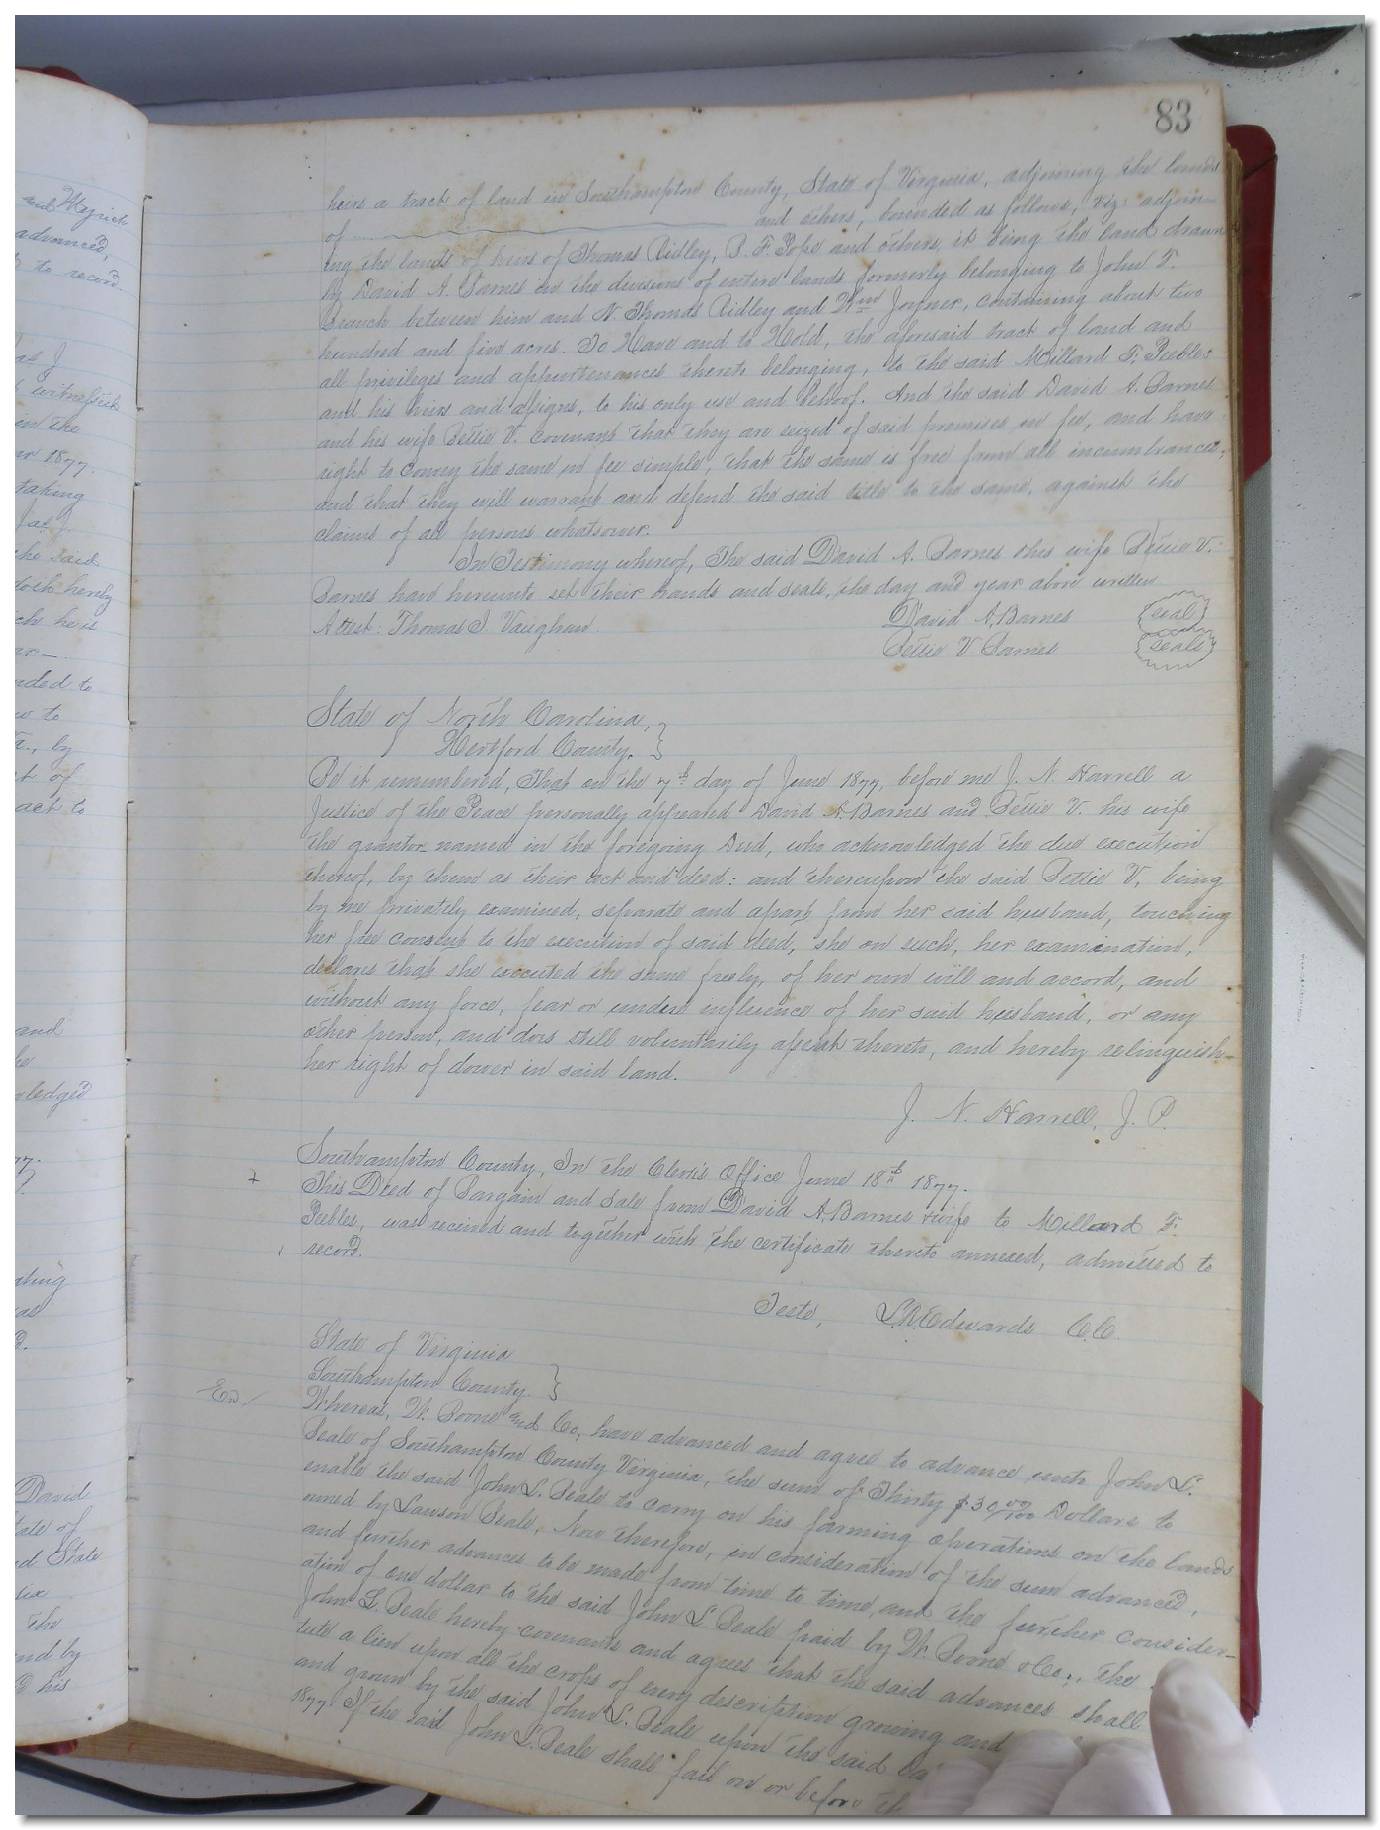 83
heirs a tract of land in Southampton County, State of Virginia, adjoining the lands
of and others, bounded as follows, viz: adjoin-
ing the lands of heirs of Thomas Ridley, B. F. Pope and others, it being the land drawn
by David A. Barnes in the division of entire lands formerly belonging to John T.
Branch between him and N. Thomas Ridley and Wm Joyner, containing about two
hundred and five acres. To Have and to Hold, the aforesaid tract of land and
all privileges and appurtenances thereto belonging, to the said Millard F. Peebles
and his heirs and assigns, to his only use and behoof. And the said David A. Barnes
and his wife Bettie V. covenant that they are seized of said premises in fee, and have
right to convey the same in fee simple, that the same is free from all incumbrances,
and that they will warrant and defend the said title to the same, against the
claims of all persons whatsoever.
In Testimony whereof, The said David A. Barnes & his wife Bettie V.
Barnes have hereunto set their hands and seals, the day and year above written
Attest: Thomas J Vaughan David A. Barnes seal
Bettie V Barnes seals
State of North Carolina, }
Hertford County. }
Be it remembered, That on the 7th day of June 1877, before me J. N. Harrell a
Justice of the Peace personally appeared David A. Barnes and Bettie V. his wife
the grantor named in the foregoing Deed, who acknowledged the due execution
thereof, by them as their act and deed: and thereupon the said Bettie V, being
by me privately examined, separate and apart from her said husband, touching
her free consent to the execution of said deed, she on such, her examination,
declares that she executed the same freely, of her own will and accord, and
without any force, fear or undue influence of her said husband, or any
other person, and does still voluntarily assent thereto, and hereby relinquish
her right of dower in said land.
J. N. Harrell, J. P.
Southampton County, In the Clerk's Office June 18th 1877.
This Deed of Bargain and Sale from David A. Barnes & wife to Millard F.
Peebles, was received and together with the certificate thereto annexed, admitted to
record.
Teste, L.R. Edwards C.C.
State of Virginia
Southampton County }
Ex.
Whereas, W. Boone and Co, have advanced and agree to advance unto John L.
Beale of Southampton County Virginia, the sum of Thirty $30 00/100 Dollars to
enable the said John L. Beale to carry on his farming operations on the lands
owned by Lawson Beale, Now therefore, in consideration of the sum advanced,
and further advances to be made from time to time, and the further consider-
ation of one dollar to the said John L Beale paid by W. Boone & Co., the
John L. Beale hereby covenants and agrees that the said advances shall
tute a lien upon all the crops of every description growing and
and grown by the said John L. Beale upon the said
1877. If the said John L. Beale shall fail on or before th
and
advanced,
to record
in the
1877.
taking
the said
doth hereby
he is
to
by
of
act to
and
David
State
the
and by
his